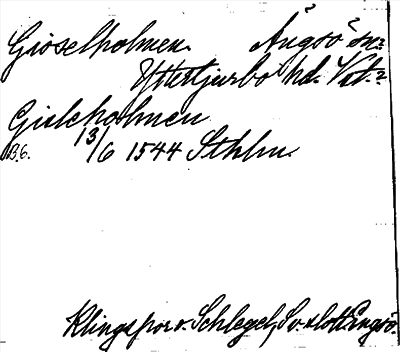 Gioselholmen. Ängsö sn?
Yttertjurbo hd. Vst.?
Gisleholmen
B.6. 13/6 1544 Sthlm.
Klingspor o. Schlegel, Sv. slott Engsö.